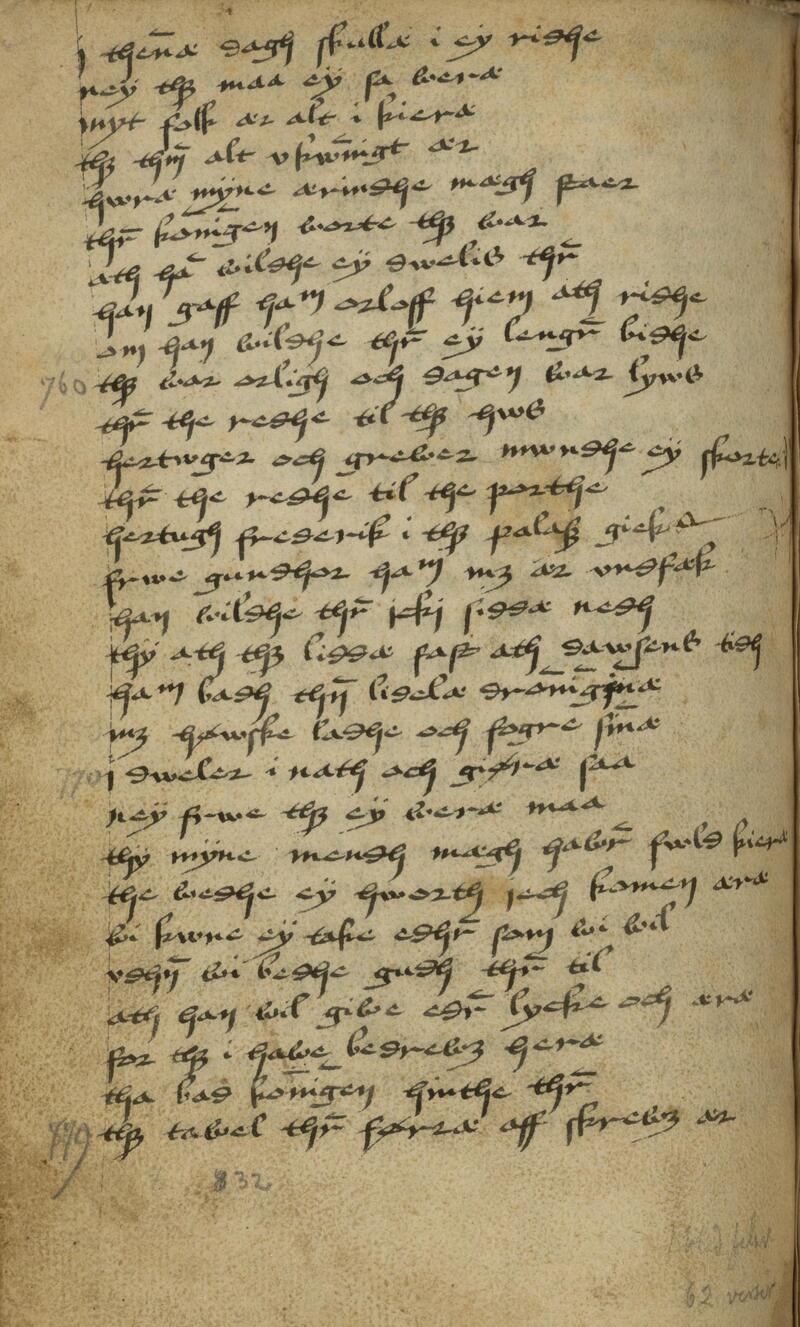 j then̄æ dagh skullæ i ey ridhe
ney thꝫ maa ey sa weræ
myt folk ær alt i kieræ
thꝫ thm̄ alt vkwn̄igt ær
hwræ myne ærindhe mægh faer
thr̄ kon̄igen worte thꝫ war
ath ha̅ wildhe ey dwelis thr̄
han gaff ham orloff hiem ath ridhe
om han wildhe thr̄ ey lengr̄ bidhe
760 thꝫ war orligh och dagen war lyws
thr̄ the redhe til thꝫ hws
hertwger och grewer mwndhe ey skorte
thr̄ the redhe til the porthe
hertugh frederik i thꝫ palaꝫ gick
frwe gundhor ham mꝫ ær vndfæk
han wildhe thr̄ jcki siddæ nedh
thy ath thꝫ liddæ fast ath dawsens tidh
ham badh thn̄ lidelæ dron̄ignnæ
mꝫ høwske ladhe och fogre sin̄æ
770 j dweler i nath och giøræ saa
ney frwe thꝫ ey weræ maa
thy myne mendh mægh hawr̄ fwls kiere
the wedhe ey hworth jech komen æræ
wi kwne ey take edhr̄ som wi wil
vdhn̄ wi bedhe gudh thr̄ til
ath han wil giwe edr̄ lycke och æræ
for thꝫ i hawe bedrewꝫ heræ
tha bad kon̄igen hinthe thr̄
779 thꝫ tawel thr̄ førræ aff skrewꝫ ær
832
62 verser